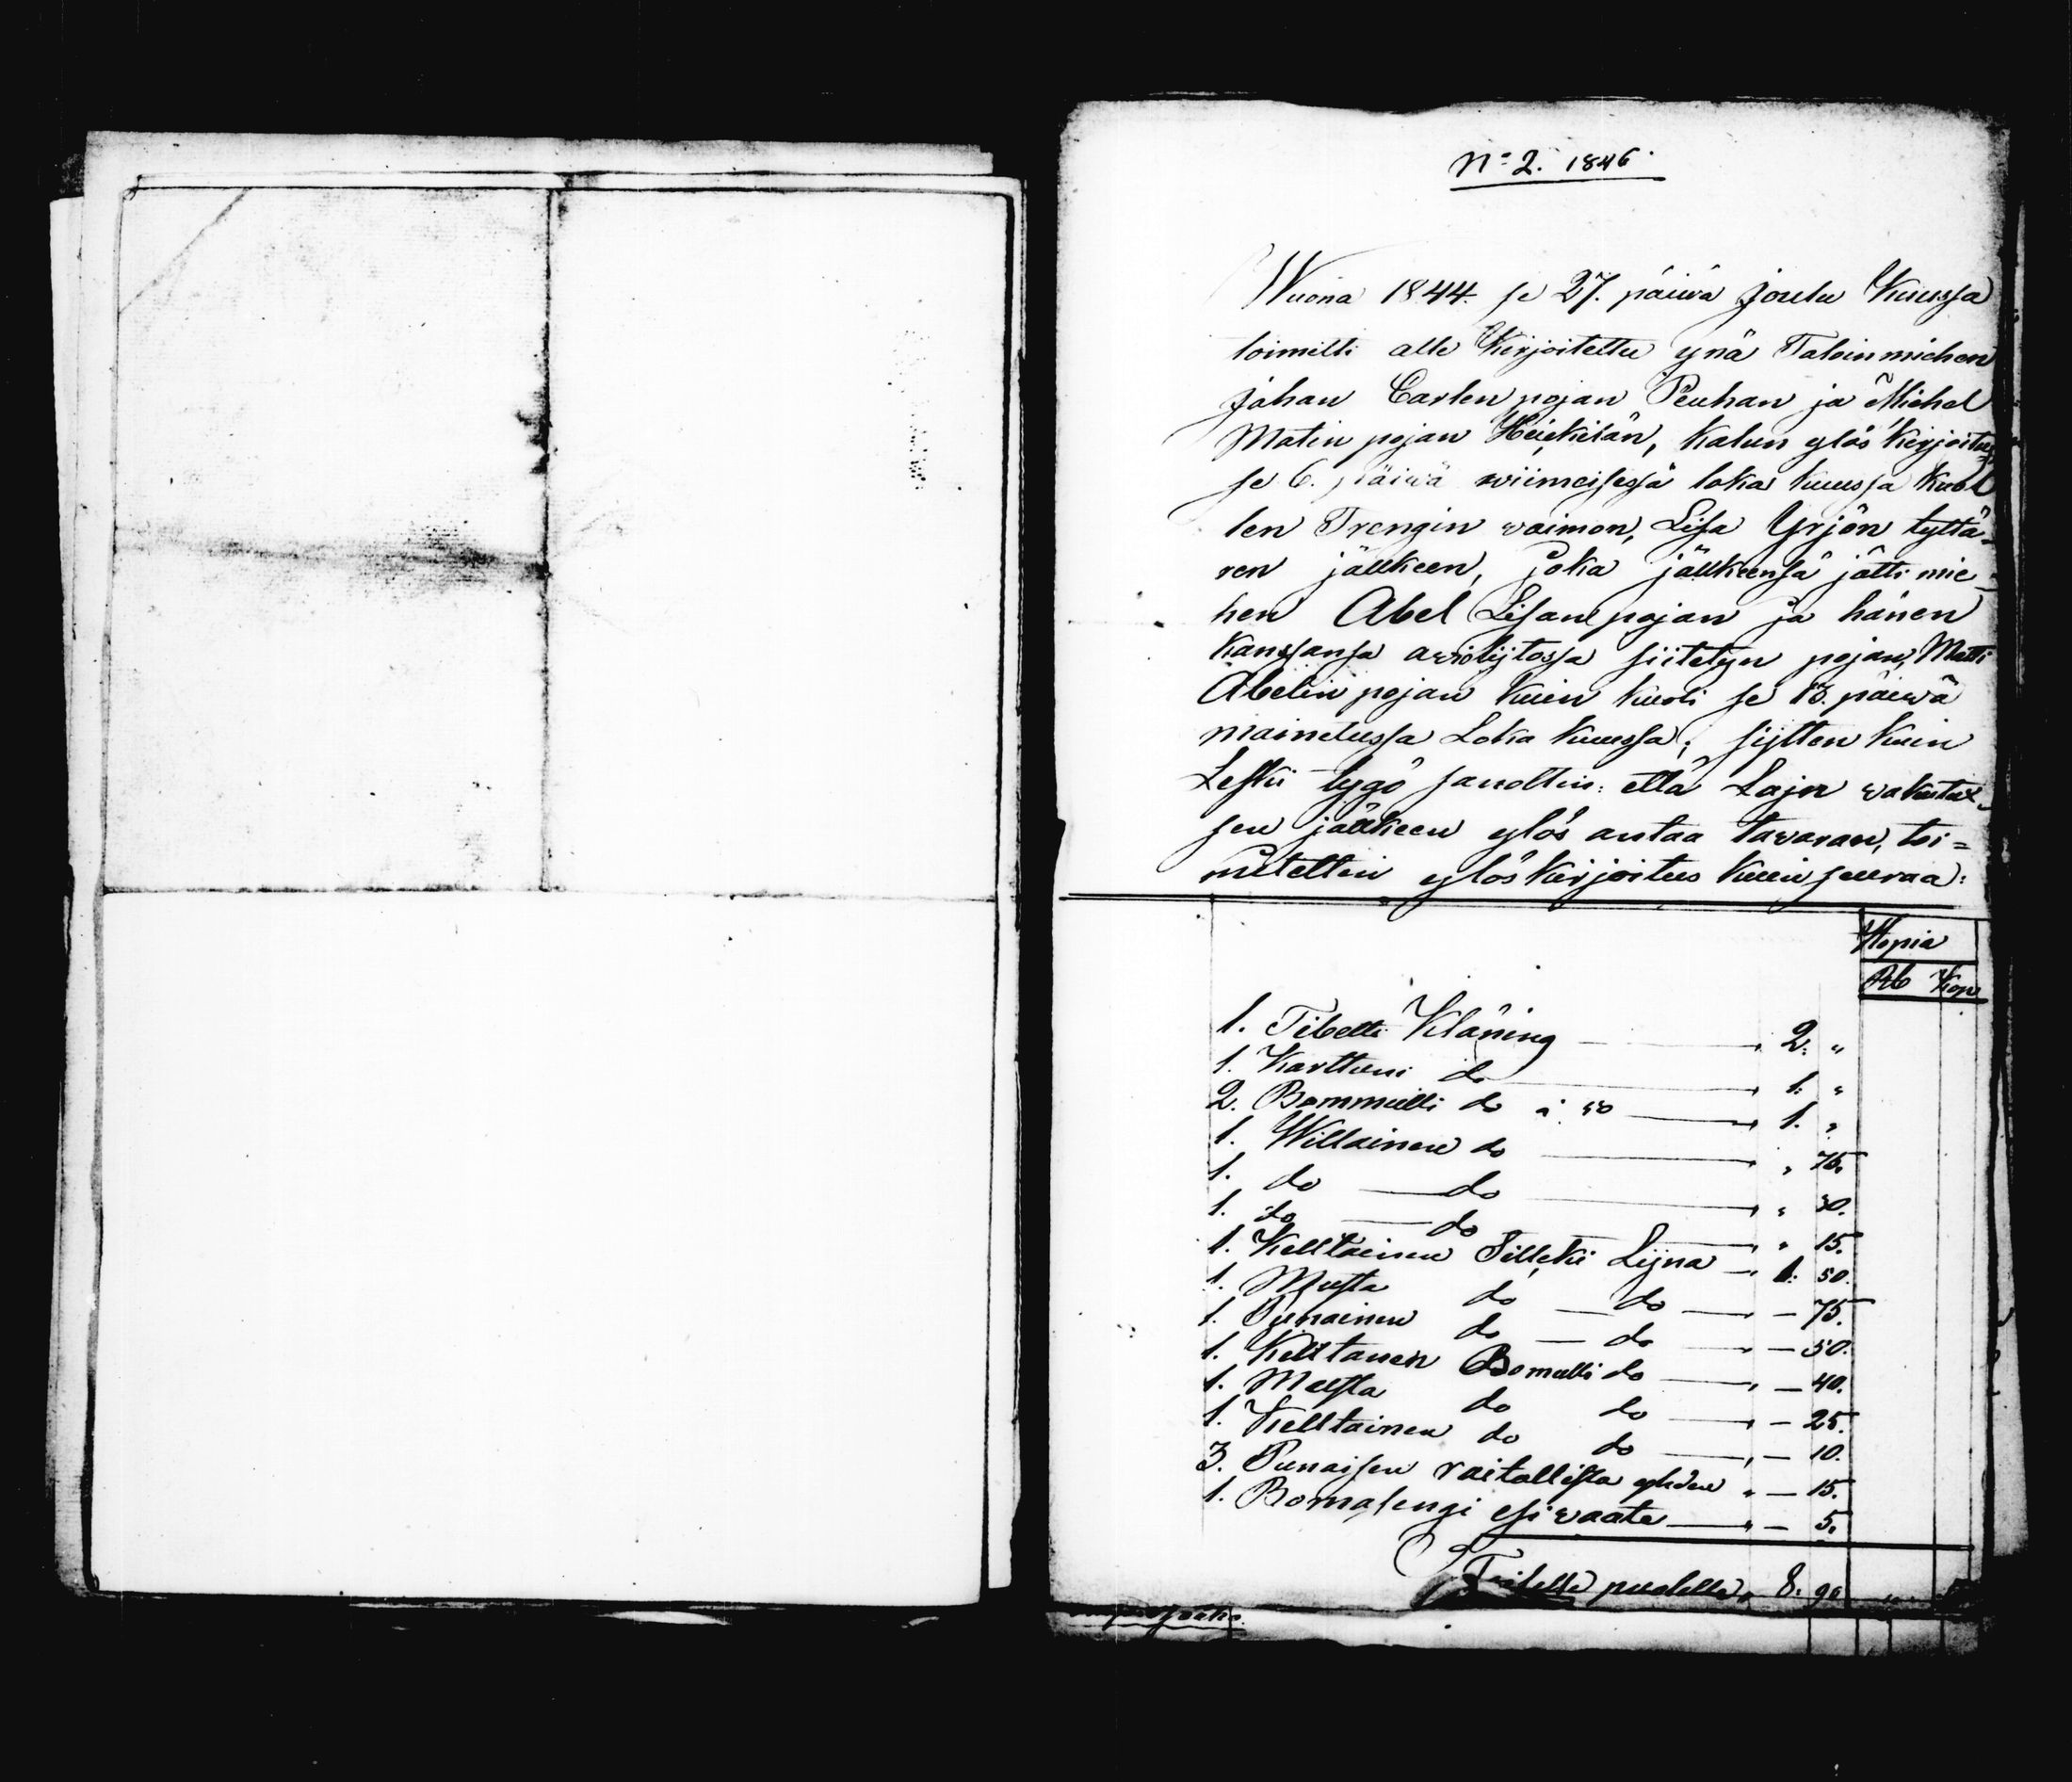 No 2. 1846.
Wuona 1844. se 27. päiwä Joulu Kuussa
toimitti alle Kirjoitettu ynä Taloinmiehen
Johan Carlen pojan Peuhan ja Michel
Matin pojan Heickilän, kalun ylös kirjoitus
se 6. päiwä wiimeisessä loka kuussa kuol
len Trengin waimon, Lisa Yrjön tyttä=
ren jälkeen, joka jälkeensä jätti mie=
hen Abel Lisan pojan ja hänen
kanssansa awiolijtossa siitetyn pojan, Matti
Abelin pojan kuin kuoli se 13. päiwä
mainetussa Loka kuussa; sijtten kuin
Leski tygö sanottin: että Lajn wakutuk=
sen jälkeen ylös antaa tawaran, toi=
mitettin ylöskirjoitus kuin seuraa:
Hopia
Rb Kop
1. Tibetti Kläning — 2. "
1. Karttuni do — 1. "
2. Bommulli do á 50 — 1. "
1. Willainen do — " 75.
1. do — do — " 30.
1. do — do — " 15.
1. Kelltainen Silcki Lijna — 1. 50.
1. Musta do — do — 75.
1. Punainen do — do — 50.
1. Kelltanen Bomulli do — 40.
1. Musta do do — 25.
1. Kelltainen do do — 10.
3. Punaisen raitallista yhden " — 15.
1. Bomasengi esiwaate — " — 5.
Toiselle puolelle, 8. 90